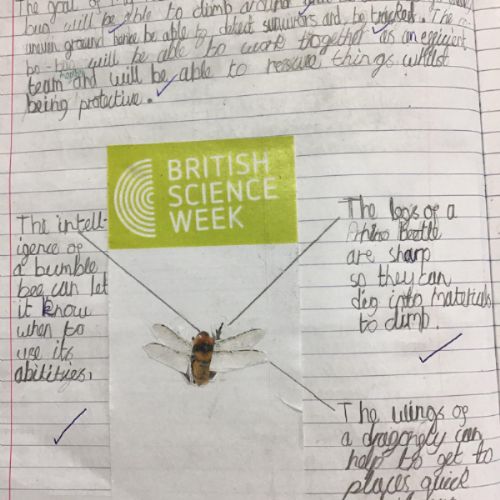 The goal of
bug will be able to climb around
uneven ground hence be able to detect survivors and be tracked. The
bo-bug will be able to work together as an efficient
team and will be able to rescue things whilst
being protective.
BRITISH
SCIENCE
WEEK
The intell-
igence of
a bumble
bee can let
it know
when to
use its
abilities.
The legs of a
Rhino Beetle
are sharp
so they can
dig into materials
to climb.
The wings of
a dragonfly can
help to get to
places quick